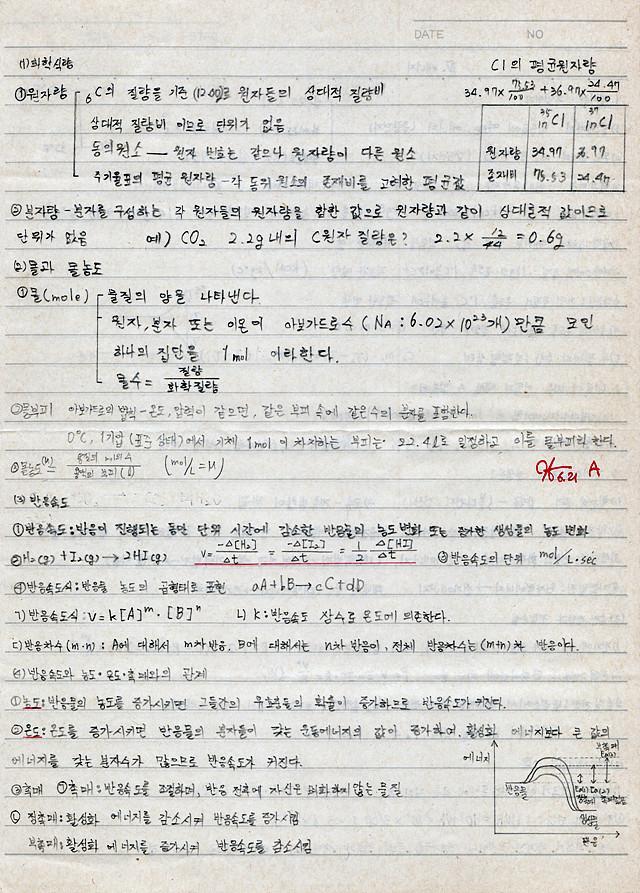 DATE NO
(1) 화학식량
Cl의 평균원자량
①원자량 6C의 질량을 기준 (12.00)로 원자들의 상대적 질량비
34.97×75.53/100 + 36.97×24.47/100
상대적 질량비 이므로 단위가 없음
35 17Cl 37 17Cl
동의원소 — 원자 번호는 같으나 원자량이 다른 원소
원자량 34.97 36.97
주기율표의 평균 원자량 - 각 동위 원소의 존재비를 고려한 평균값
존재비 75.53 24.47
②분자량 - 분자를 구성하는 각 원자들의 원자량을 합한 값으로 원자량과 같이 상대론적 값이므로
단위가 없음 예) CO2 2.2g내의 C원자 질량은? 2.2 × 12/44 = 0.6g
(2) 몰과 몰농도
①몰(mole) 물질의 양을 나타낸다.
원자, 분자 또는 이온이 아보가드로수 (NA : 6.02 × 10^23개) 만큼 모인
하나의 집단을 1mol 이라한다.
몰수 = 질량/화학질량
②몰부피 아보가드로의 법칙 - 온도, 압력이 같으면, 같은 부피 속에 같은 수의 분자를 포함한다.
0℃, 1기압 (표준 상태)에서 기체 1mol 이 차지하는 부피는 22.4l로 일정하고 이를 몰부피라 한다.
③몰농도(M) = 용질의 몰수/용액의 부피(l) (mol/L = M)
6.21 A
(3) 반응속도
①반응속도: 반응이 진행되는 동안 단위 시간에 감소한 반응물의 농도변화 또는 증가한 생성물의 농도 변화
②H2(g) + I2(g) → 2HI(g) v = -Δ[H2]/Δt = -Δ[I2]/Δt = 1/2 Δ[HI]/Δt ③반응속도의 단위 mol/L·sec
④반응속도식: 반응물 농도의 곱형태로 표현 aA+bB → cC+dD
ㄱ) 반응속도식: v=k[A]^m·[B]^n ㄴ) k: 반응속도 상수로 온도에 의존한다.
ㄷ) 반응차수(m·n): A에 대해서 m차반응, B에 대해서는 n차 반응이, 전체 반응차수는 (m+n)차 반응이다.
(4) 반응속도와 농도·온도·촉매와의 관계
①농도: 반응물의 농도를 증가시키면 그들간의 유효충돌의 확률이 증가하므로 반응속도가 커진다.
②온도: 온도를 증가시키면 반응물의 분자들이 갖는 운동에너지의 값이 증가하여, 활성화 에너지보다 큰 값의
에너지를 갖는 분자수가 많으므로 반응속도가 커진다.
③촉매 ㉠촉매: 반응속도를 조절하며, 반응 전후에 자신은 변화하지 않는 물질
㉡ 정촉매: 활성화 에너지를 감소시켜 반응속도를 증가시킴
부촉매: 활성화 에너지를 증가시켜 반응속도를 감소시킴
에너지
부촉매
반응물
생성물
반응